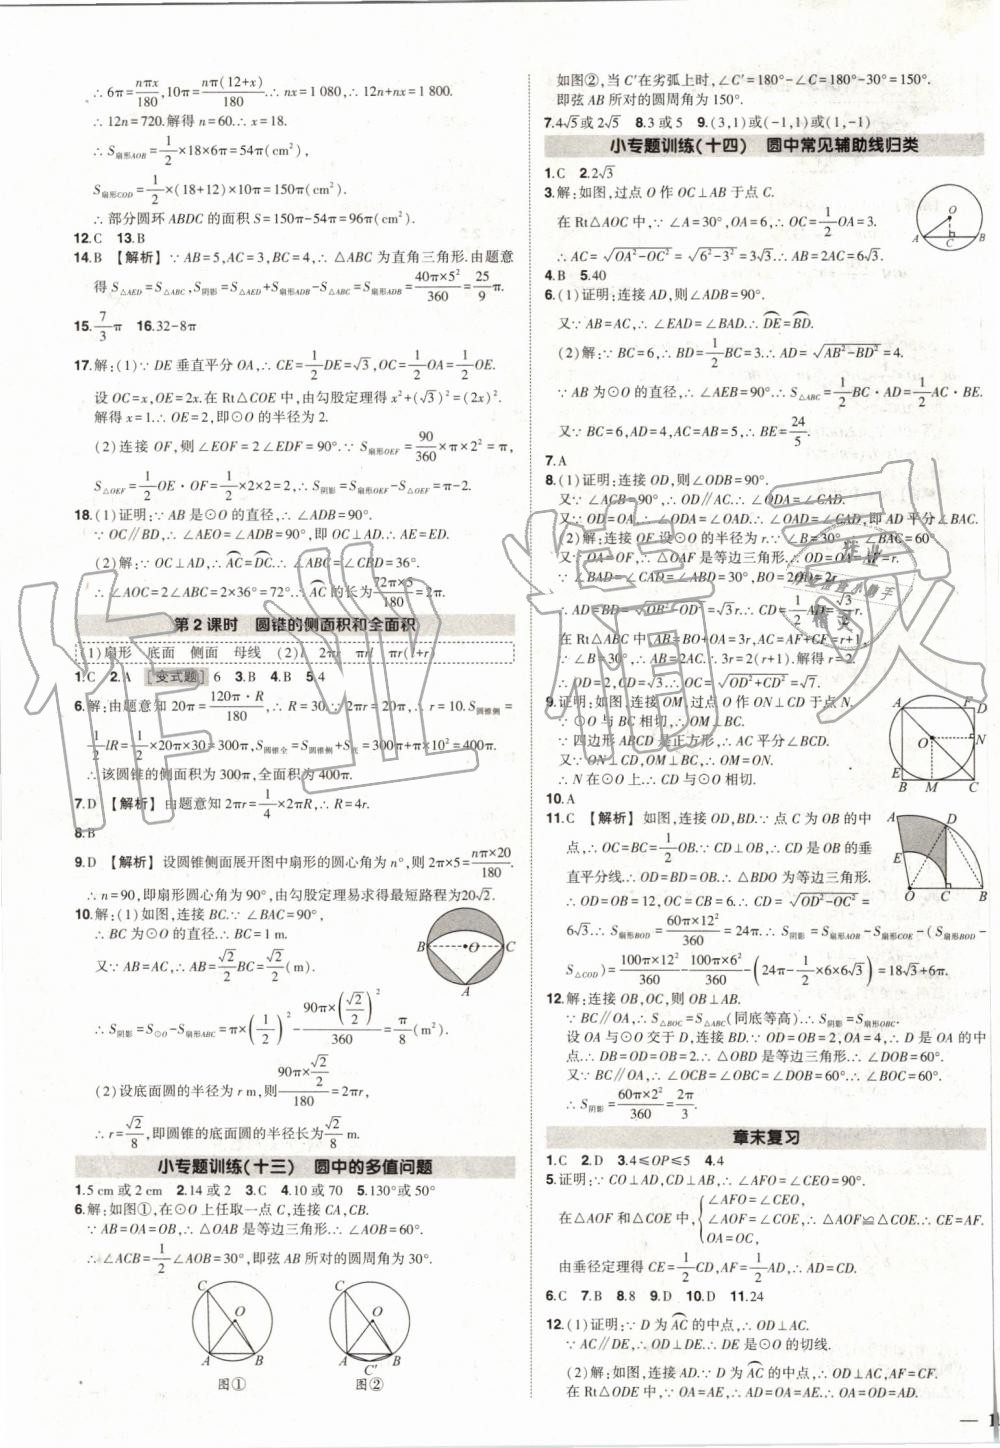 ∴ 6π=nπx/180,10π=nπ(12+x)/180.∴ nx=1 080,12n+nx=1 800.
∴ 12n=720.解得 n=60.∴ x=18.
∴ S扇形AOB=1/2×18×6π=54π(cm²),
S扇形COD=1/2×(18+12)×10π=150π(cm²).
∴ 部分圆环 ABDC 的面积 S=150π-54π=96π(cm²).
12.C 13.B
14.B 【解析】∵ AB=5,AC=3,BC=4,∴ △ABC 为直角三角形.由题意
得 S△AED=S△ABC,S阴影=S△AED+S扇形ADB-S△ABC=S扇形ADB=40π×5²/360=25/9π.
15.7/3π 16.32-8π
17.解:(1)∵ DE 垂直平分 OA,∴ CE=1/2DE=√3,OC=1/2OA=1/2OE.
设 OC=x,OE=2x.在 Rt△COE 中,由勾股定理得 x²+(√3)²=(2x)².
解得 x=1.∴ OE=2,即⊙O 的半径为 2.
(2)连接 OF,则 ∠EOF=2∠EDF=90°.∵ S扇形OEF=90/360×π×2²=π,
S△OEF=1/2OE·OF=1/2×2×2=2,∴ S阴影=S扇形OEF-S△OEF=π-2.
18.(1)证明:∵ AB 是⊙O 的直径,∴ ∠ADB=90°.
∵ OC∥BD,∴ ∠AEO=∠ADB=90°,即 OC⊥AD.∴ AE=ED.
(2)解:∵ OC⊥AD,∴ AC=DC.∴ ∠ABC=∠CBD=36°.
∴ ∠AOC=2∠ABC=2×36°=72°.∴ AC的长为72π×5/180=2π.
第 2 课时 圆锥的侧面积和全面积
(1)扇形 底面 侧面 母线 (2)l 2πr πrl πr(l+r)
1.C 2.A [变式题]6 3.B 4.B 5.4
6.解:由题意知 20π=120π·R/180,∴ R=30.∵ 20π=2πr,∴ r=10.S圆锥侧=
1/2lR=1/2×20π×30=300π,S圆锥全=S圆锥侧+S底=300π+π×10²=400π.
∴ 该圆锥的侧面积为 300π,全面积为 400π.
7.D 【解析】由题意知 2πr=1/4×2πR,∴ R=4r.
8.B
9.D 【解析】设圆锥侧面展开图中扇形的圆心角为 n°,则 2π×5=nπ×20/180.
∴ n=90,即扇形圆心角为 90°,由勾股定理易求得最短路程为20√2.
10.解:(1)如图,连接 BC.∵ ∠BAC=90°,
∴ BC 为⊙O 的直径.∴ BC=1 m.
又∵ AB=AC,∴ AB=√2/2BC=√2/2(m).
∴ S阴影=S⊙O-S扇形ABC=π×(1/2)²-90π×(√2/2)²/360=π/8(m²).
(2)设底面圆的半径为 r m,则 90π×√2/2/180=2πr,
∴ r=√2/8,即圆锥的底面圆的半径长为√2/8 m.
B O C
A
小专题训练(十三) 圆中的多值问题
1.5 cm 或 2 cm 2.14 或 2 3.C 4.10 或 70 5.130°或 50°
6.解:如图①,在⊙O 上任取一点 C,连接 CA,CB.
∵ AB=OA=OB,∴ △OAB 是等边三角形.∴ ∠AOB=60°.
∴ ∠ACB=1/2∠AOB=30°,即弦 AB 所对的圆周角为 30°.
C O A B
图①
C O A B C′
图②
如图②,当 C′在劣弧上时,∠C′=180°-∠C=180°-30°=150°.
即弦 AB 所对的圆周角为 150°.
7.4√5或 2√5 8.3 或 5 9.(3,1)或(-1,1)或(1,-1)
小专题训练(十四) 圆中常见辅助线归类
1.C 2.2√3
3.解:如图,过点 O 作 OC⊥AB 于点 C.
在 Rt△AOC 中,∵ ∠A=30°,OA=6,∴ OC=1/2OA=3.
∴ AC=√OA²-OC²=√6²-3²=3√3.∴ AB=2AC=6√3.
O A C B
4.B 5.40
6.(1)证明:连接 AD,则∠ADB=90°.
又∵ AB=AC,∴ ∠EAD=∠BAD.∴ DE=BD.
(2)解:∵ BC=6,∴ BD=1/2BC=3.∴ AD=√AB²-BD²=4.
∵ AB 为⊙O 的直径,∴ ∠AEB=90°.∴ S△ABC=1/2BC·AD=1/2AC·BE.
又∵ BC=6,AD=4,AC=AB=5,∴ BE=24/5.
7.A
8.(1)证明:连接 OD,则∠ODB=90°.
又∵ ∠ACB=90°,∴ OD∥AC.∴ ∠ODA=∠CAD.
又∵ OD=OA,∴ ∠ODA=∠OAD.∴ ∠OAD=∠CAD,即 AD 平分∠BAC.
(2)解:连接 OF,设⊙O 的半径为 r.∵ ∠B=30°,∴ ∠BAC=60°.
又∵ OA=OF,∴ △OAF 是等边三角形.∴ OD=OA=AF=r.
∵ ∠BAD=∠CAD=1/2∠BAC=30°,BO=2OD=2r,
∴ BD=√OB²-OD²=√3r.∴ CD=1/2AD=√3/2r.
∵ AB=BO+OA=3r,AC=AF+CF=r+1,
∴ 3r=2(r+1).解得 r=2.
∴ OD=2,CD=√3.∴ OC=√OD²+CD²=√7.
9.证明:如图,连接 OM,过点 O 作 ON⊥CD 于点 N.
∵ ⊙O 与 BC 相切,∴ OM⊥BC.
∵ 四边形 ABCD 是正方形,∴ AC 平分∠BCD.
又∵ ON⊥CD,OM⊥BC,∴ OM=ON.
∴ N 在⊙O 上.∴ CD 与⊙O 相切.
A D O N B M C
10.A
11.C 【解析】如图,连接 OD,BD.∵ 点 C 为 OB 的中
点,∴ OC=BC=1/2OB.∵ CD⊥OB,∴ CD 是 OB 的垂
直平分线.∴ OD=DB.∴ △BDO 为等边三角形.
∴ OD=OB=12,OC=CB=6.∴ CD=√OD²-OC²=
6√3.∴ S扇形BOD=60π×12²/360=24π.∴ S阴影=S扇形AOB-S扇形COE-(S扇形BOD-
S△COD)=100π×12²/360-100π×6²/360-(24π-1/2×6×6√3)=18√3+6π.
A D E O C B
12.解:连接 OB,OC,则 OB⊥AB.
∵ BC∥OA,∴ S△BOC=S△ABC(同底等高).∴ S阴影=S扇形BOC.
设 OA 与⊙O 交于 D,连接 BD.∵ OD=OB=2,OA=4,∴ D 是 OA 的中
点.∴ DB=OD=OB=2.∴ △OBD 是等边三角形.∴ ∠DOB=60°.
又∵ BC∥OA,∴ ∠OCB=∠OBC=∠DOB=60°.∴ ∠BOC=60°.
∴ S阴影=60π×2²/360=2π/3.
章末复习
1.C 2.D 3.4≤OP≤5 4.4
5.证明:∵ CO⊥AD,CD⊥AB,∴ ∠AFO=∠CEO=90°.
在△AOF 和△COE 中,{∠AFO=∠CEO, ∠AOF=∠COE, OA=OC, ∴ △AOF≌△COE.∴ CE=AF.
由垂径定理得 CE=1/2CD,AF=1/2AD,∴ AD=CD.
6.C 7.B 8.8 9.D 10.D 11.24
12.(1)证明:∵ D 为AC的中点,∴ OD⊥AC.
∵ AC∥DE,∴ OD⊥DE.∴ DE 是⊙O 的切线.
(2)解:如图,连接 AD.∵ D 为AC的中点,∴ OD⊥AC,AF=CF.
在 Rt△ODE 中,∵ OA=AE,∴ AD=OA=AE.∴ AD=OA=OD.
作业精灵